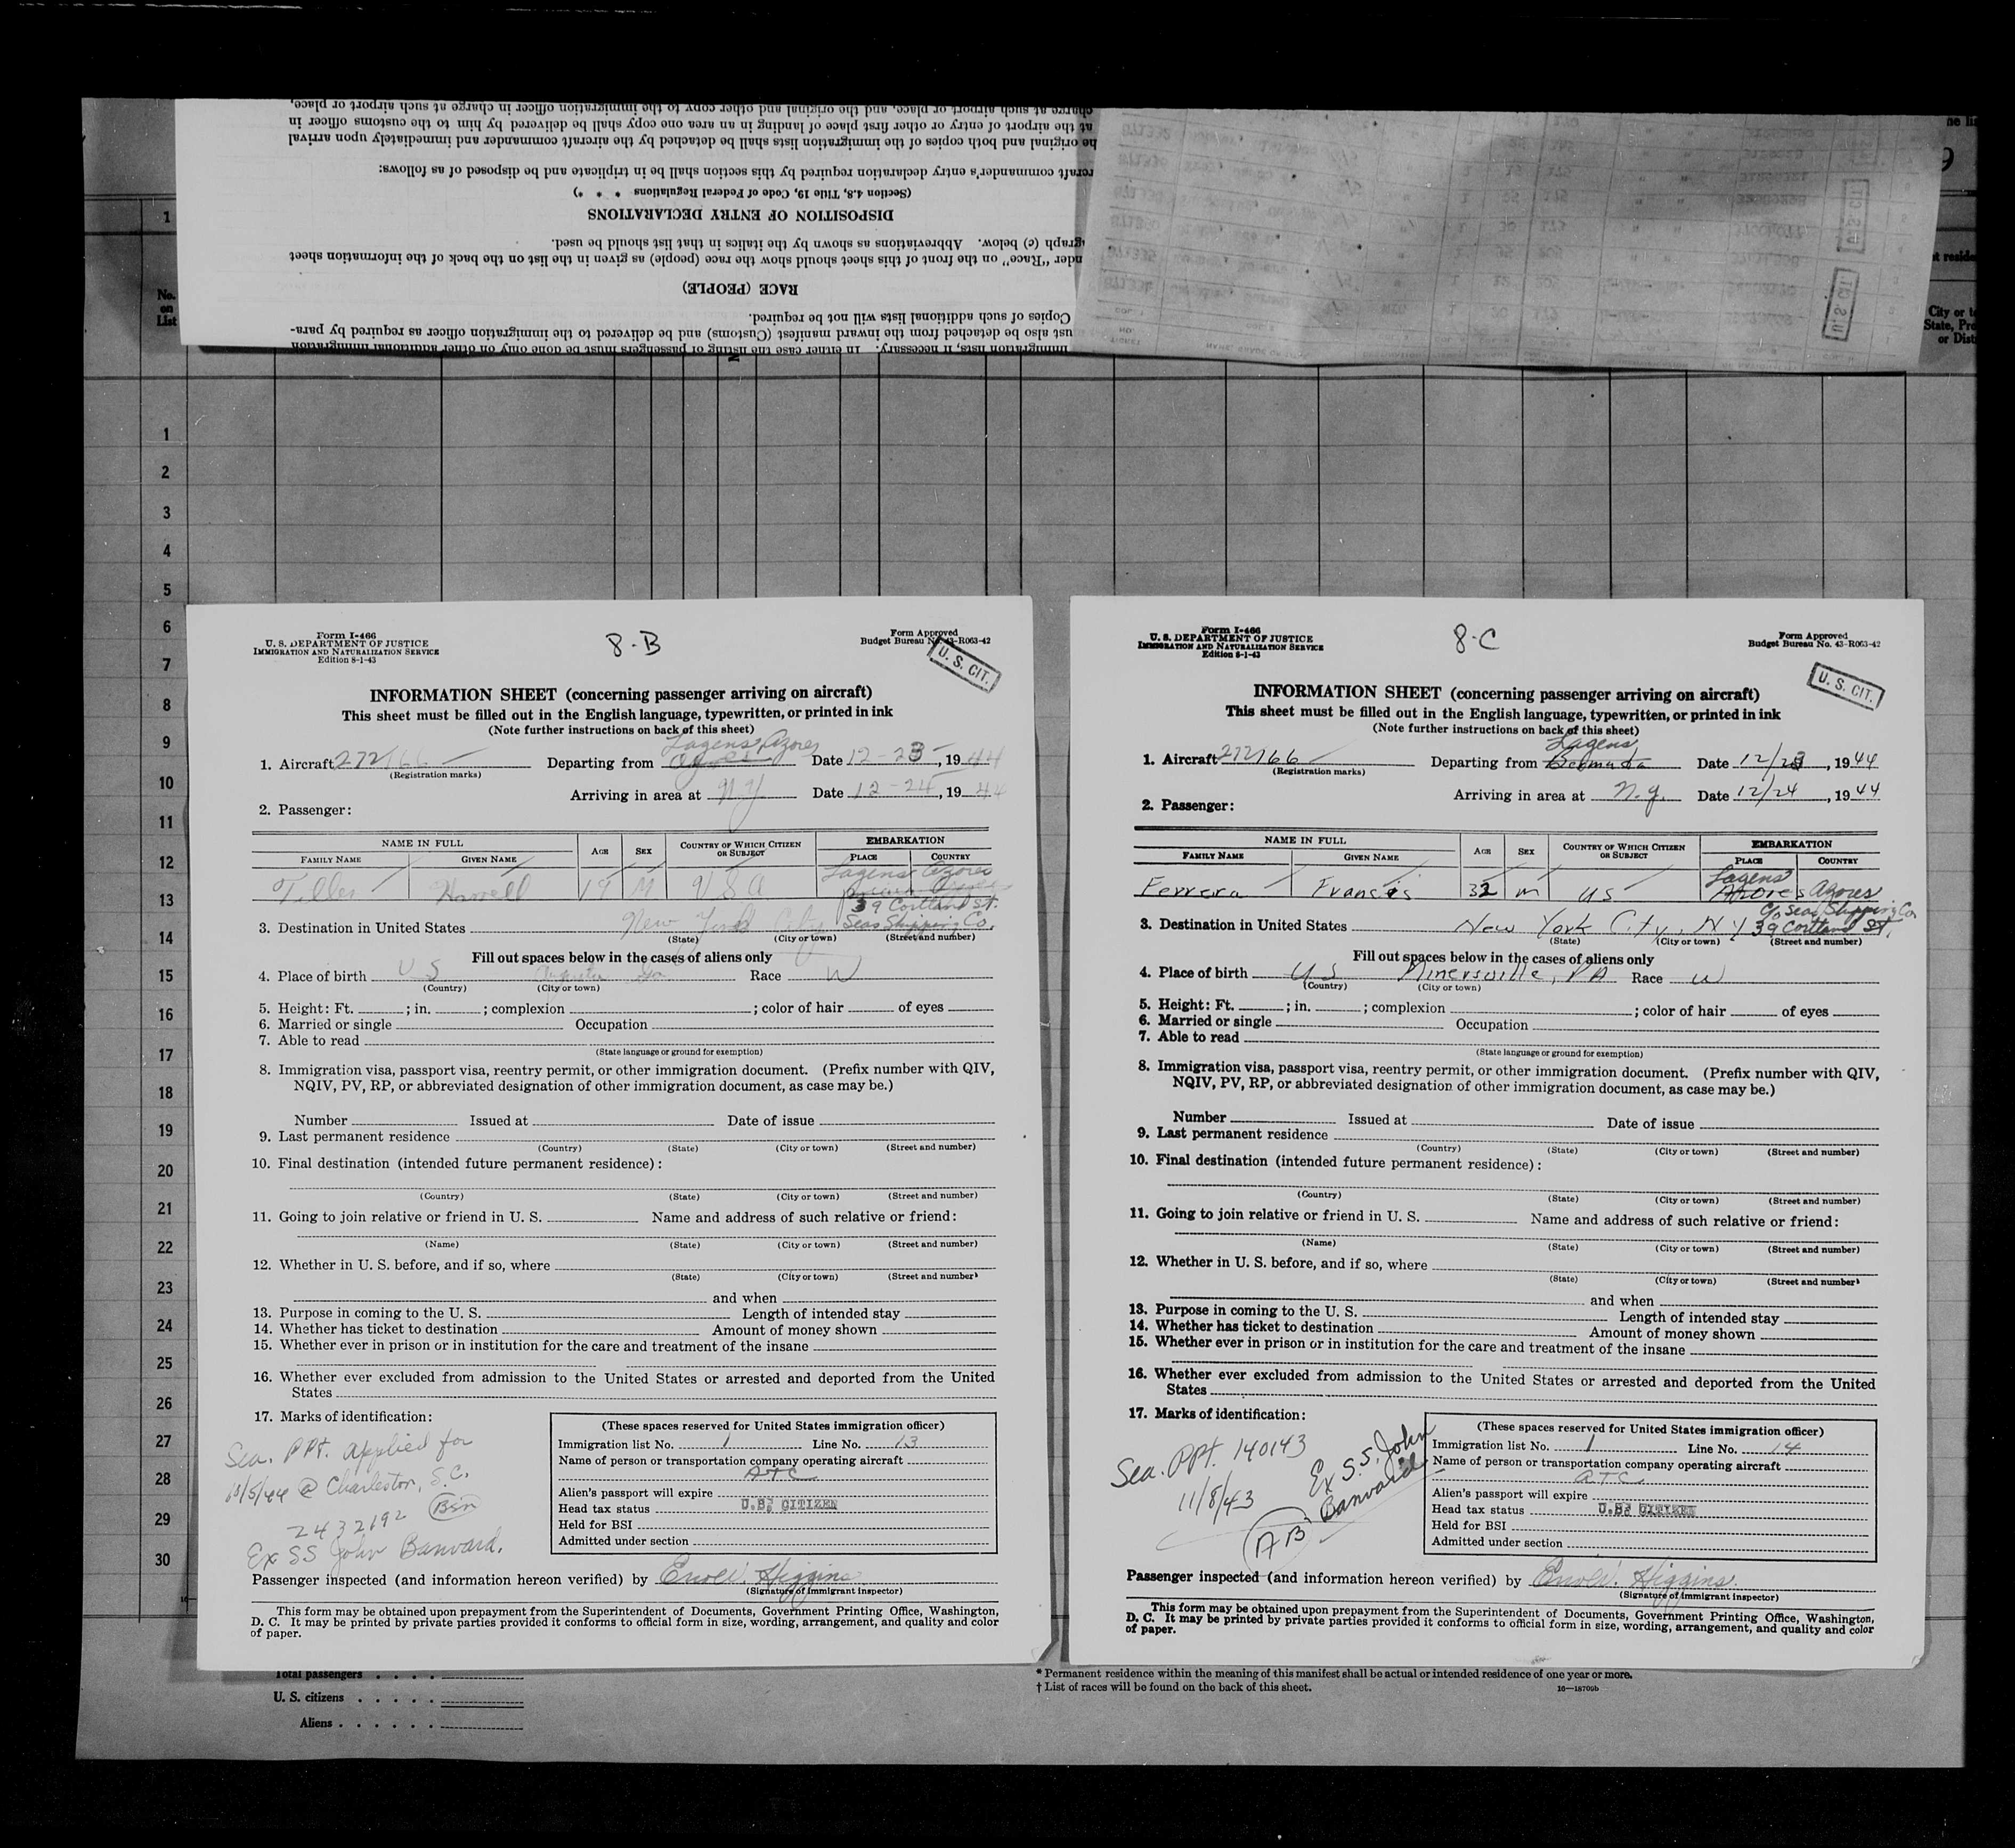 charge at such airport or place, and the original and other copy to the immigration officer in charge at such airport or place,
at the airport of entry or other first place of landing in an area one copy shall be delivered by him to the customs officer in
he original and both copies of the immigration lists shall be detached by the aircraft commander and immediately upon arrival
rcraft commander's entry declaration required by this section shall be in triplicate and be disposed of as follows:
(Section 4.8, Title 19, Code of Federal Regulations * * *)
DISPOSITION OF ENTRY DECLARATIONS
agraph (c) below. Abbreviations as shown by the italics in that list should be used.
nder "Race" on the front of this sheet should show the race (people) as given in the list on the back of the information sheet
RACE (PEOPLE)
Copies of such additional lists will not be required.
ust also be detached from the inward manifest (Customs) and be delivered to the immigration officer as required by para-
immigration lists, if necessary. In either case the listing of passengers must be done only on other additional immigration
U.S. CIT.
No. on List
City or t
State, Pro
or Dist
1
1
2
3
4
5
6
7
8
9
10
11
12
13
14
15
16
17
18
19
20
21
22
23
24
25
26
27
28
29
30
Form I-466
U. S. DEPARTMENT OF JUSTICE
IMMIGRATION AND NATURALIZATION SERVICE
Edition 8-1-43
8-B
Form Approved
Budget Bureau No. 43-R063-42
U. S. CIT.
INFORMATION SHEET (concerning passenger arriving on aircraft)
This sheet must be filled out in the English language, typewritten, or printed in ink
(Note further instructions on back of this sheet)
Lagens Azores
1. Aircraft 272166 Departing from Date 12-23, 1944
(Registration marks)
Arriving in area at NY Date 12-24, 1944
2. Passenger:
NAME IN FULL AGE SEX COUNTRY OF WHICH CITIZEN OR SUBJECT EMBARKATION
FAMILY NAME GIVEN NAME PLACE COUNTRY
Lagens Azores
19 M USA
39 Cortland St.
3. Destination in United States New York City Seas Shipping Co.
(State) (City or town) (Street and number)
Fill out spaces below in the cases of aliens only
4. Place of birth US Race W
(Country) (City or town)
5. Height: Ft. ; in. ; complexion ; color of hair of eyes
6. Married or single Occupation
7. Able to read
(State language or ground for exemption)
8. Immigration visa, passport visa, reentry permit, or other immigration document. (Prefix number with QIV,
NQIV, PV, RP, or abbreviated designation of other immigration document, as case may be.)
Number Issued at Date of issue
9. Last permanent residence
(Country) (State) (City or town) (Street and number)
10. Final destination (intended future permanent residence):
(Country) (State) (City or town) (Street and number)
11. Going to join relative or friend in U. S. Name and address of such relative or friend:
(Name) (State) (City or town) (Street and number)
12. Whether in U. S. before, and if so, where
(State) (City or town) (Street and number)
and when
13. Purpose in coming to the U. S. Length of intended stay
14. Whether has ticket to destination Amount of money shown
15. Whether ever in prison or in institution for the care and treatment of the insane
16. Whether ever excluded from admission to the United States or arrested and deported from the United
States
17. Marks of identification:
Sea. PPt. applied for
@ Charleston, S.C.
2432192
Ex SS John Banvard.
(These spaces reserved for United States immigration officer)
Immigration list No. 1 Line No. 13
Name of person or transportation company operating aircraft
ATC
Alien's passport will expire
Head tax status U.S. CITIZEN
Held for BSI
Admitted under section
Passenger inspected (and information hereon verified) by Higgins
(Signature of immigrant inspector)
This form may be obtained upon prepayment from the Superintendent of Documents, Government Printing Office, Washington,
D. C. It may be printed by private parties provided it conforms to official form in size, wording, arrangement, and quality and color
of paper.
Form I-466
U. S. DEPARTMENT OF JUSTICE
IMMIGRATION AND NATURALIZATION SERVICE
Edition 8-1-43
8-C
Form Approved
Budget Bureau No. 43-R063-42
U. S. CIT.
INFORMATION SHEET (concerning passenger arriving on aircraft)
This sheet must be filled out in the English language, typewritten, or printed in ink
(Note further instructions on back of this sheet)
Lagens
1. Aircraft 272166 Departing from Bermuda Date 12/23, 1944
(Registration marks)
Arriving in area at N.Y. Date 12/24, 1944
2. Passenger:
NAME IN FULL AGE SEX COUNTRY OF WHICH CITIZEN OR SUBJECT EMBARKATION
FAMILY NAME GIVEN NAME PLACE COUNTRY
Lagens
Ferrera Francis 32 m US Azores Azores
c/o Seas Shipping Co.
3. Destination in United States New York City, NY 39 Cortland St.
(State) (City or town) (Street and number)
Fill out spaces below in the cases of aliens only
4. Place of birth US Minersville, PA Race W
(Country) (City or town)
5. Height: Ft. ; in. ; complexion ; color of hair of eyes
6. Married or single Occupation
7. Able to read
(State language or ground for exemption)
8. Immigration visa, passport visa, reentry permit, or other immigration document. (Prefix number with QIV,
NQIV, PV, RP, or abbreviated designation of other immigration document, as case may be.)
Number Issued at Date of issue
9. Last permanent residence
(Country) (State) (City or town) (Street and number)
10. Final destination (intended future permanent residence):
(Country) (State) (City or town) (Street and number)
11. Going to join relative or friend in U. S. Name and address of such relative or friend:
(Name) (State) (City or town) (Street and number)
12. Whether in U. S. before, and if so, where
(State) (City or town) (Street and number)
and when
13. Purpose in coming to the U. S. Length of intended stay
14. Whether has ticket to destination Amount of money shown
15. Whether ever in prison or in institution for the care and treatment of the insane
16. Whether ever excluded from admission to the United States or arrested and deported from the United
States
17. Marks of identification:
Sea. PPt. 140143
11/8/43
Ex S.S. John
Banvard
AB
(These spaces reserved for United States immigration officer)
Immigration list No. 1 Line No. 14
Name of person or transportation company operating aircraft
ATC
Alien's passport will expire
Head tax status U.S. CITIZEN
Held for BSI
Admitted under section
Passenger inspected (and information hereon verified) by Higgins
(Signature of immigrant inspector)
This form may be obtained upon prepayment from the Superintendent of Documents, Government Printing Office, Washington,
D. C. It may be printed by private parties provided it conforms to official form in size, wording, arrangement, and quality and color
of paper.
Total passengers
U. S. citizens
Aliens
* Permanent residence within the meaning of this manifest shall be actual or intended residence of one year or more.
† List of races will be found on the back of this sheet.
16—18709b